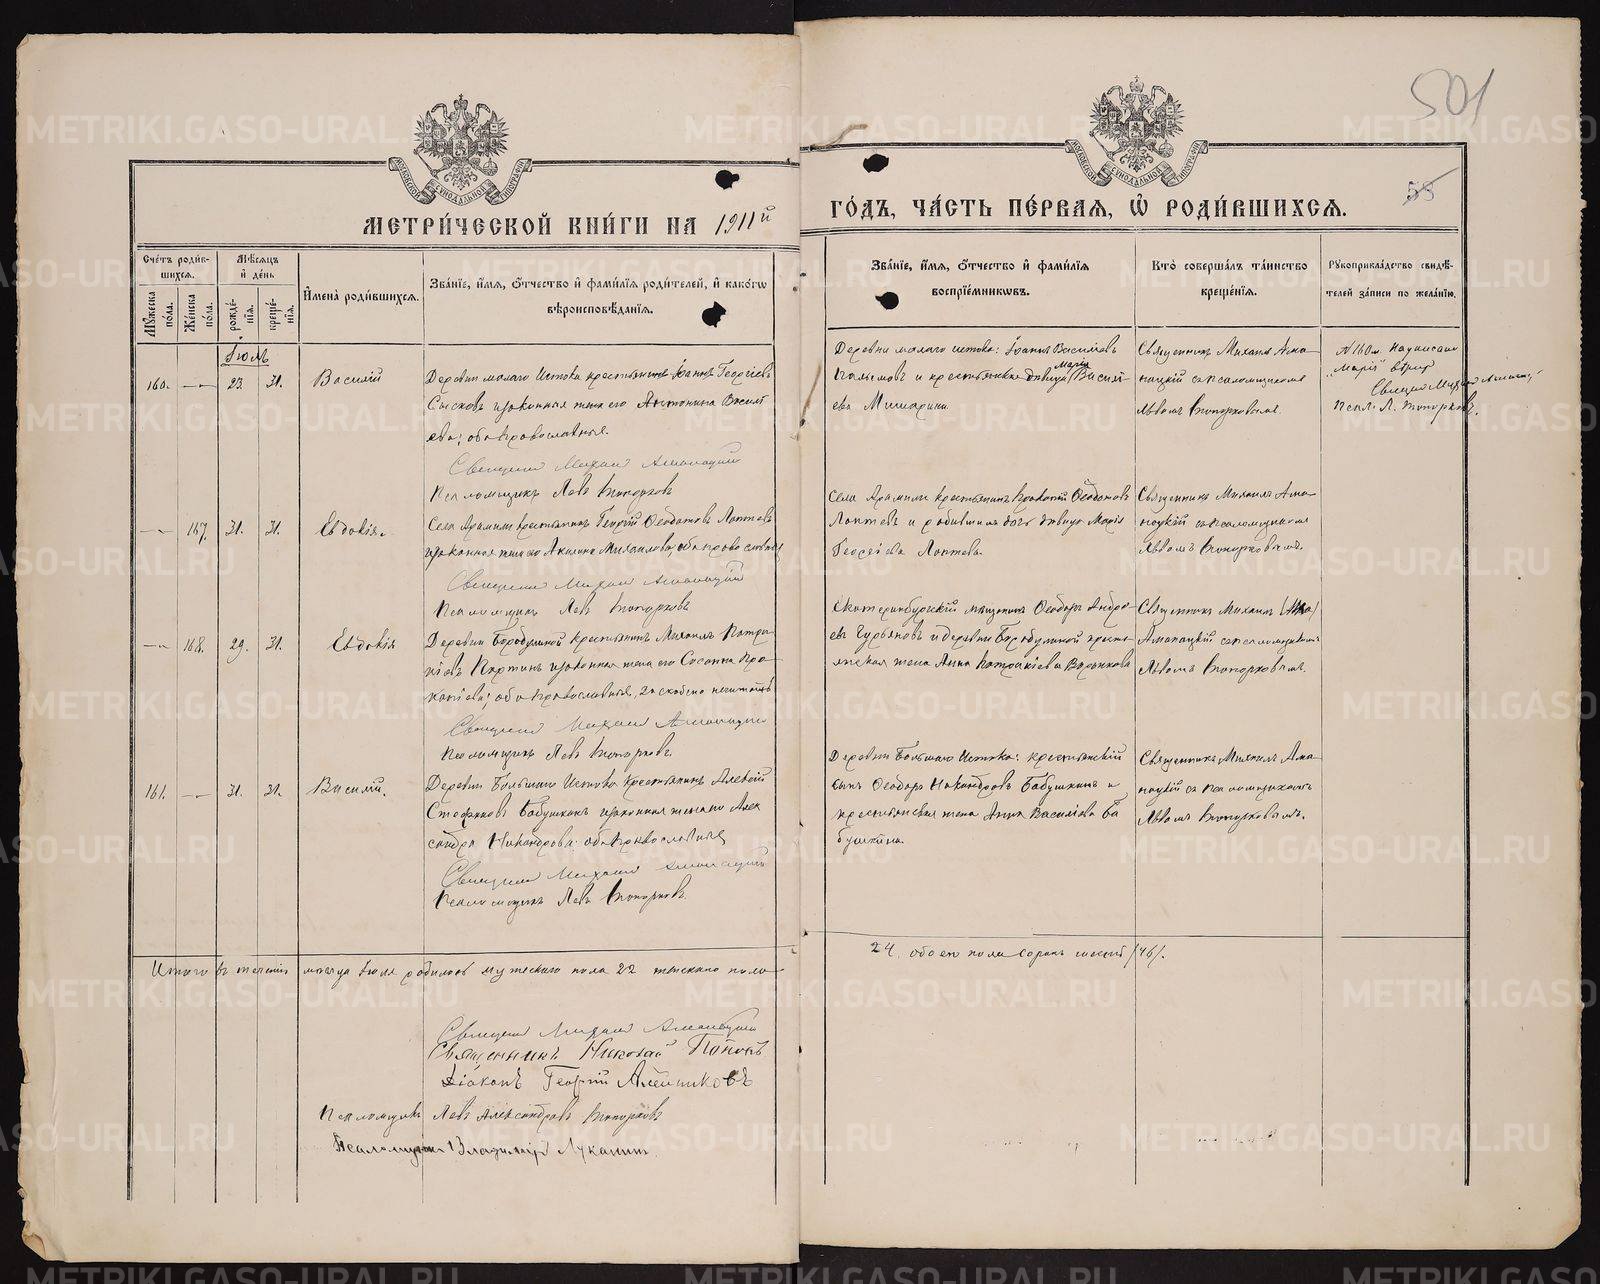 501
55
МОСКОВСКОЙ СѴНОДАЛЬНОЙ ТИПОГРАФІИ
МОСКОВСКОЙ СѴНОДАЛЬНОЙ ТИПОГРАФІИ
МЕТРИ́ЧЕСКОЙ КНИ́ГИ НА 1911й
ГО́ДЪ, ЧА́СТЬ ПЕ́РВАЯ, Ѡ҆ РОДИ́ВШИХСЯ.
Счетъ родив-
шихся.
Мужеска
пола.
Женска
пола.
Мѣсяцъ
и день
рожде-
нія.
креще-
нія.
Имена родившихся.
Званіе, имя, отчество и фамилія родителей, и какого
вѣроисповѣданія.
Званіе, имя, отчество и фамилія
воспріемниковъ.
Кто совершалъ таинство
крещенія.
Рукоприкладство свидѣ-
телей записи по желанію.
Іюль
160. 23. 31. Василій
Деревни малаго Истока крестьянинъ Іоаннъ Георгіевъ
Сысковъ и законная жена его Антонина Василі
ева; оба православные.
Священникъ Михаил
Псаломщикъ Левъ Топорковъ
Деревни малаго истока: Іоаннъ Василіевъ
и крестьянская дѣвица Марія Василі
ева Мишарина.
Священникъ Михаилъ
съ псаломщикомъ
Львомъ Топорковымъ.
№ 160м. надписано
"Марія" вѣрно
Псал. Л. Топорковъ.
167. 31. 31. Евдокія.
Села Арамили крестьянинъ Георгій Ѳеодотовъ Лаптевъ
и законная жена его Акилина Михаилова, оба православные
Священникъ Михаил
Псаломщикъ Левъ Топорковъ
Села Арамили крестьянинъ Ѳеодотовъ
Лаптевъ и родившихъ дочь дѣвица Марія
Георгіева Лаптева.
Священникъ Михаилъ
съ псаломщикомъ
Львомъ Топорковымъ.
168. 29. 31. Евдокія
Деревни Бородулиной крестьянинъ Михаилъ Патри
кіевъ и законная жена его Сосанна Про
копіева; оба православные, за скобками нечитать
Священникъ Михаил
Псаломщикъ Левъ Топорковъ.
Екатеринбургскій мѣщанинъ Ѳеодоръ Андре
евъ Гурьяновъ и деревни Бородулиной кресть
янская жена Анна Патракіева
Священникъ Михаилъ
съ псаломщикомъ
Львомъ Топорковымъ.
161. 31. 31. Василій.
Деревни Большаго Истока крестьянинъ Алексій
Стефановъ Бабушкинъ и законная жена его Алек
сандра Никандрова: оба православные
Священникъ Михаил
Псаломщикъ Левъ Топорковъ.
Деревни Большаго Истока: крестьянскій
сынъ Ѳеодоръ Никандровъ Бабушкинъ и
крестьянская жена Анна Василіева Ба
бушкина.
Священникъ Михаилъ
съ псаломщикомъ
Львомъ Топорковымъ.
Итого въ теченіи мѣсяца Іюля родилось мужескаго пола 22 женскаго пола
24, обоего пола сорокъ шесть /46/.
Священникъ Михаил
Священникъ Николай Поповъ
Діаконъ Георгій
Псаломщикъ Левъ Александровъ Топорковъ
Псаломщикъ Владимір Луканин
METRIKI.GASO-URAL.RU